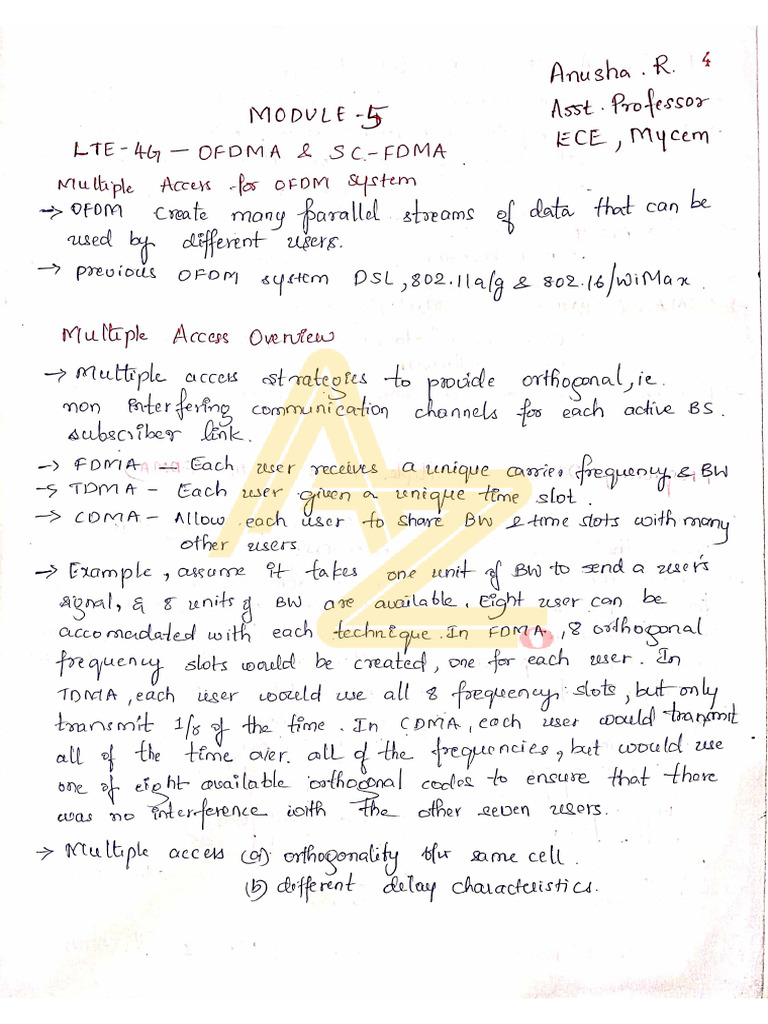 4
Anusha . R.
Asst. Professor
ECE , Mycem
MODULE - 5
LTE - 4G — OFDMA & SC-FDMA
Multiple Access for OFDM System
→ OFDM create many parallel streams of data that can be
used by different users.
→ previous OFDM system DSL, 802.11a/g & 802.16/WiMax .
Multiple Access Overview
→ Multiple access strategies to provide orthogonal, ie.
non interfering communication channels for each active BS.
subscriber link.
→ FDMA — Each user receives a unique carrier frequency & BW
→ TDMA - Each user given a unique time slot .
→ CDMA - Allow each user to share BW & time slots with many
other users
→ Example, assume it takes one unit of BW to send a user's
signal, & 8 units of BW are available. Eight user can be
accomadated with each technique. In FDMA , 8 orthogonal
frequency slots would be created, one for each user. In
TDMA, each user would use all 8 frequency slots, but only
transmit 1/8 of the time. In CDMA, each user would transmit
all of the time over all of the frequencies, but would use
one of eight available orthogonal codes to ensure that there
was no interference with the other seven users.
→ Multiple access (a) orthogonality b/w same cell .
(b) different delay characteristics.
AZ